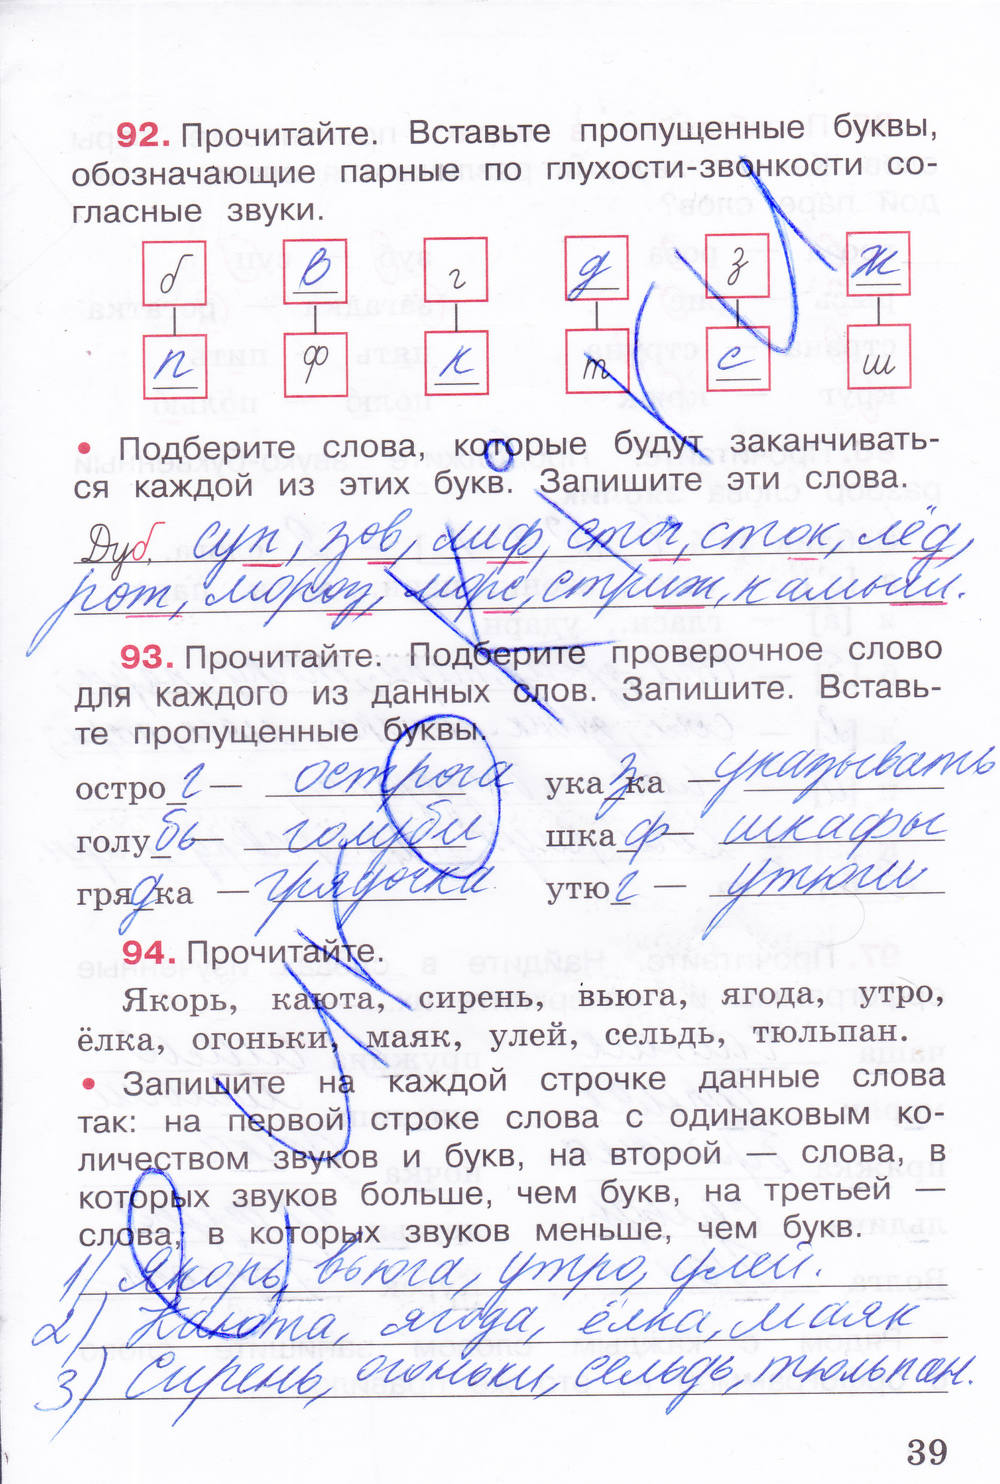 92. Прочитайте. Вставьте пропущенные буквы,
обозначающие парные по глухости-звонкости со-
гласные звуки.
б в г д з ж
п ф к т с ш
• Подберите слова, которые будут заканчивать-
ся каждой из этих букв. Запишите эти слова.
Дуб, суп, зов, миф, стог, сток, лёд,
рот, мороз, морс, стриж, камыш.
93. Прочитайте. Подберите проверочное слово
для каждого из данных слов. Запишите. Вставь-
те пропущенные буквы.
остро г — острога ука з ка — указывать
голу бь — голуби шка ф — шкафы
гря д ка — грядочка утю г — утюги
94. Прочитайте.
Якорь, каюта, сирень, вьюга, ягода, утро,
ёлка, огоньки, маяк, улей, сельдь, тюльпан.
• Запишите на каждой строчке данные слова
так: на первой строке слова с одинаковым ко-
личеством звуков и букв, на второй — слова, в
которых звуков больше, чем букв, на третьей —
слова, в которых звуков меньше, чем букв.
1) Якорь, вьюга, утро, улей.
2) Каюта, ягода, ёлка, маяк
3) Сирень, огоньки, сельдь, тюльпан.
39